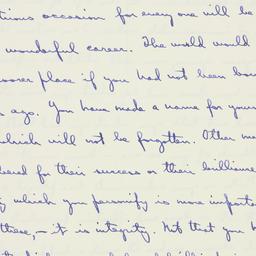 tious occasion for every one will be
wonderful career. The world would
poorer place if you had not been bor
ago. You have made a name for your
which will not be forgotten. Other me
bered for their success or their brilliance
which you personify is more importa
these, – it is integrity. Not that you h